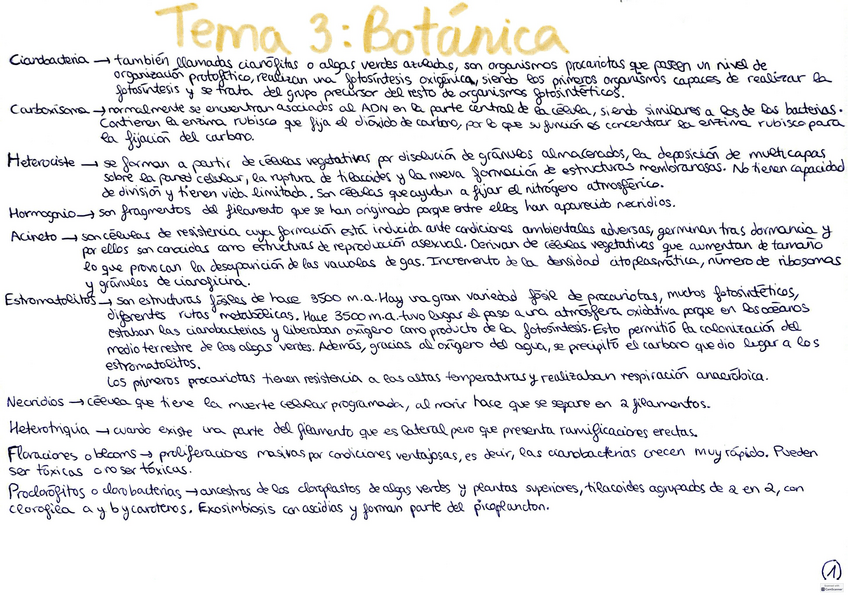 Tema 3: Botánica
Cianobacteria → también llamadas cianófitas o algas verdes azuladas, son organismos procariotas que poseen un nivel de
organización protofítico, realizan una fotosíntesis oxigénica, siendo los primeros organismos capaces de realizar la
fotosíntesis y se trata del grupo precursor del resto de organismos fotosintéticos.
Carboxisoma → normalmente se encuentran asociados al ADN en la parte central de la célula, siendo similares a los de las bacterias.
Contienen la enzima rubisco que fija el dióxido de carbono, por lo que su función es concentrar la enzima rubisco para
la fijación del carbono.
Heterociste → se forman a partir de células vegetativas por disolución de gránulos almacenados, la deposición de multicapas
sobre la pared celular, la ruptura de tilacoides y la nueva formación de estructuras membranosas. No tienen capacidad
de división y tienen vida limitada. Son células que ayudan a fijar el nitrógeno atmosférico.
Hormogonio → son fragmentos del filamento que se han originado porque entre ellos han aparecido necridios.
Acineto → son células de resistencia cuya formación está inducida ante condiciones ambientales adversas, germinan tras dormancia y
por ellos son conocidas como estructuras de reproducción asexual. Derivan de células vegetativas que aumentan de tamaño
lo que provocan la desaparición de las vacuolas de gas. Incremento de la densidad citoplasmática, número de ribosomas
y gránulos de cianoficina.
Estromatolitos → son estructuras fósiles de hace 3500 m.a. Hay una gran variedad fósil de procariotas, muchos fotosintéticos,
diferentes rutas metabólicas. Hace 3500 m.a. tuvo lugar el paso a una atmósfera oxidativa porque en los océanos
estaban las cianobacterias y liberaban oxígeno como producto de la fotosíntesis. Esto permitió la colonización del
medio terrestre de las algas verdes. Además, gracias al oxígeno del agua, se precipitó el carbono que dio lugar a los
estromatolitos.
Los primeros procariotas tienen resistencia a las altas temperaturas y realizaban respiración anaeróbica.
Necridios → célula que tiene la muerte celular programada, al morir hace que se separe en 2 filamentos.
Heterotriquia → cuando existe una parte del filamento que es lateral pero que presenta ramificaciones erectas.
Floraciones o blooms → proliferaciones masivas por condiciones ventajosas, es decir, las cianobacterias crecen muy rápido. Pueden
ser tóxicas o no ser tóxicas.
Proclorófitos o clorobacterias → ancestros de los cloroplastos de algas verdes y plantas superiores, tilacoides agrupados de 2 en 2, con
clorofila a y b y carotenos. Exosimbiosis con ascidias y forman parte del picoplancton.
1
CamScanner